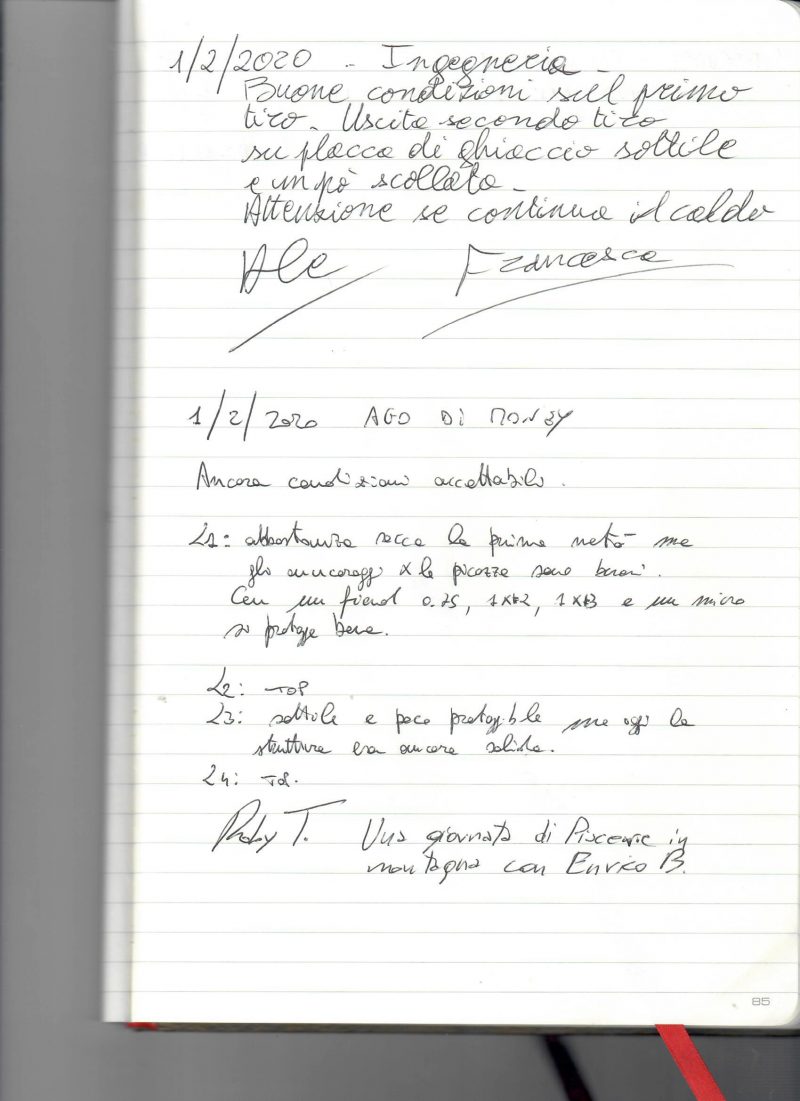 1/2/2020 - Ingegneria -
Buone condizioni sul primo
tiro. Uscita secondo tiro
su placca di ghiaccio sottile
e un pò scollata -
Attenzione se continua il caldo
Ale Francesca
1/2/2020 AGO DI MONEY
Ancora condizioni accettabili.
L1: abbastanza secca la prima metà ma
gli ancoraggi x le picozze sono buoni.
Con un friend 0.75, 1x#2, 1x#3 e un micro
si protegge bene.
L2: TOP
L3: sottile e poco proteggibile ma oggi la
struttura era ancora solida.
L4: TOP.
Roby T. Una giornata di Piacere in
montagna con Enrico B.
85